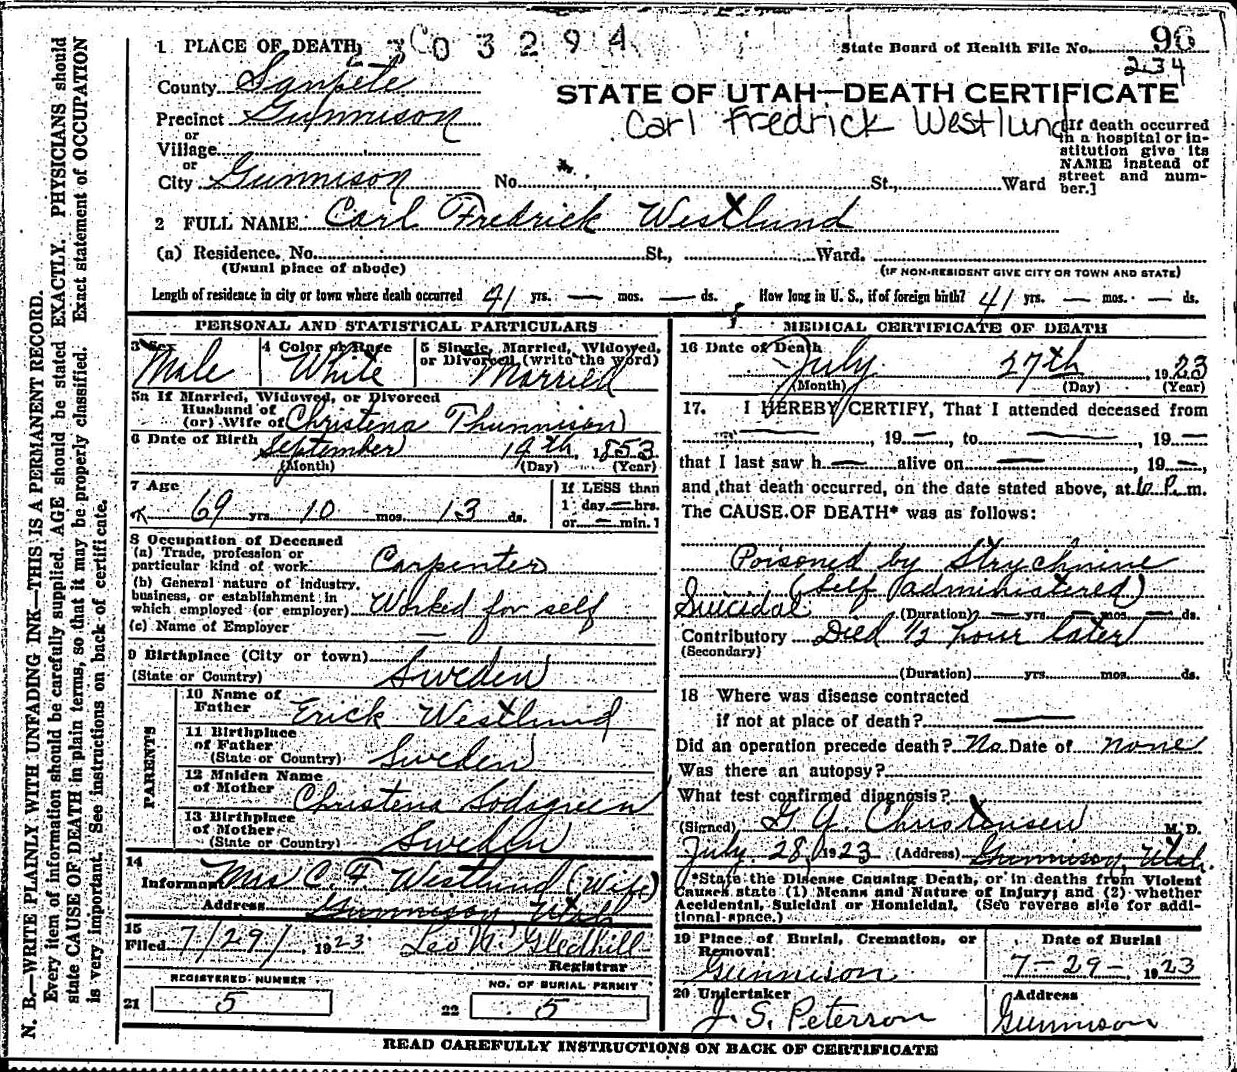 N. B.—WRITE PLAINLY WITH UNFADING INK—THIS IS A PERMANENT RECORD.
Every item of information should be carefully supplied. AGE should be stated EXACTLY. PHYSICIANS should
state CAUSE OF DEATH in plain terms, so that it may be properly classified. Exact statement of OCCUPATION
is very important. See instructions on back of certificate.
1 PLACE OF DEATH
03294
State Board of Health File No. 96
234
County Sanpete
STATE OF UTAH—DEATH CERTIFICATE
Precinct Gunnison
Carl Fredrick Westlund
or
Village
or
City Gunnison No. St., Ward
[If death occurred
in a hospital or in-
stitution give its
NAME instead of
street and num-
ber.]
2 FULL NAME Carl Fredrick Westlund
(a) Residence. No. St., Ward.
(Usual place of abode) (IF NON-RESIDENT GIVE CITY OR TOWN AND STATE)
Length of residence in city or town where death occurred 41 yrs. — mos. — ds. How long in U. S., if of foreign birth? 41 yrs. — mos. — ds.
PERSONAL AND STATISTICAL PARTICULARS
3 Sex
Male
4 Color or Race
White
5 Single, Married, Widowed,
or Divorced (write the word)
Married
5a If Married, Widowed, or Divorced
Husband of
(or) Wife of Christena Thunnison
6 Date of Birth September 14th, 1853
(Month) (Day) (Year)
7 Age
69 yrs. 10 mos. 13 ds.
If LESS than
1 day — hrs.
or — min.
8 Occupation of Deceased
(a) Trade, profession or
particular kind of work Carpenter
(b) General nature of industry,
business, or establishment in
which employed (or employer) Worked for self
(c) Name of Employer —
9 Birthplace (City or town)
(State or Country) Sweden
PARENTS
10 Name of
Father Erick Westlund
11 Birthplace
of Father
(State or Country) Sweden
12 Maiden Name
of Mother Christena Sodsgreen
13 Birthplace
of Mother
(State or Country) Sweden
14
Informant Mrs C. F. Westlund (Wife)
Address Gunnison, Utah
15
Filed 7/29/ 1923 Leo W. Gledhill
Registrar
REGISTERED NUMBER
21 5
NO. OF BURIAL PERMIT
22 5
MEDICAL CERTIFICATE OF DEATH
16 Date of Death
July 27th, 1923
(Month) (Day) (Year)
17. I HEREBY CERTIFY, That I attended deceased from
—, 19—, to —, 19—
that I last saw h— alive on —, 19—,
and that death occurred, on the date stated above, at 6 P. m.
The CAUSE OF DEATH* was as follows:
Poisoned by Strychnine
(self administered)
Suicidal (Duration) — yrs. — mos. — ds.
Contributory Died 1/2 hour later
(Secondary)
(Duration) yrs. mos. ds.
18 Where was disease contracted
if not at place of death? —
Did an operation precede death? No Date of none
Was there an autopsy?
What test confirmed diagnosis?
(Signed) G. A. Christensen M. D.
July 28, 1923 (Address) Gunnison, Utah.
*State the Disease Causing Death, or in deaths from Violent
Causes state (1) Means and Nature of Injury; and (2) whether
Accidental, Suicidal or Homicidal. (See reverse side for addi-
tional space.)
19 Place of Burial, Cremation, or
Removal
Gunnison
Date of Burial
7-29-, 1923
20 Undertaker
J. S. Peterson
Address
Gunnison
READ CAREFULLY INSTRUCTIONS ON BACK OF CERTIFICATE